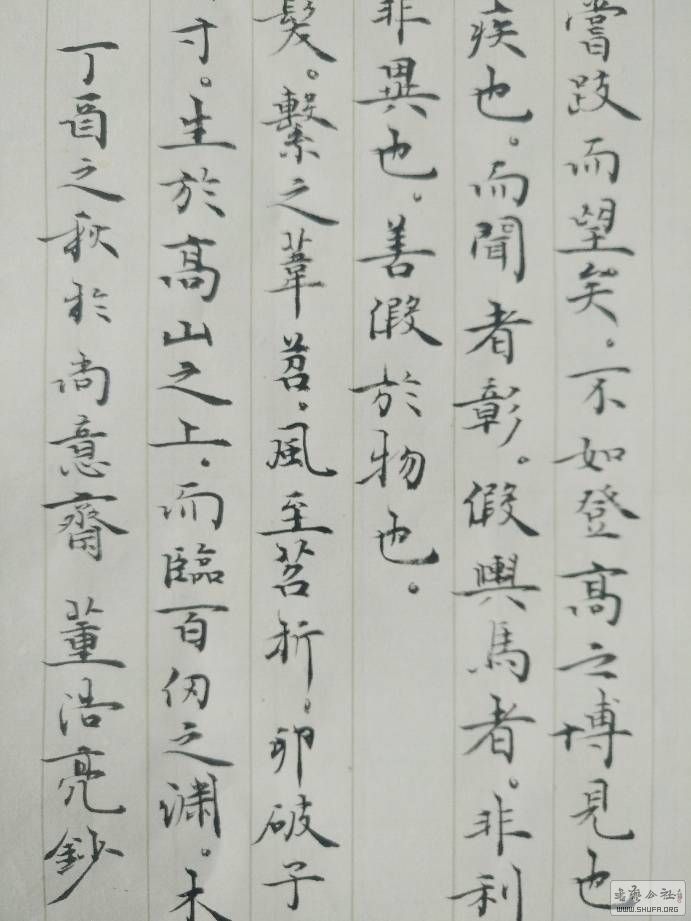 嘗跂而望矣。不如登高之博見也
疾也。而聞者彰。假輿馬者。非利
非異也。善假於物也。
髮。繫之葦苕。風至苕折。卵破子
寸。生於高山之上。而臨百仞之淵。木
丁酉之秋於尚意齋 董浩亮鈔
WWW.SHUFA.ORG